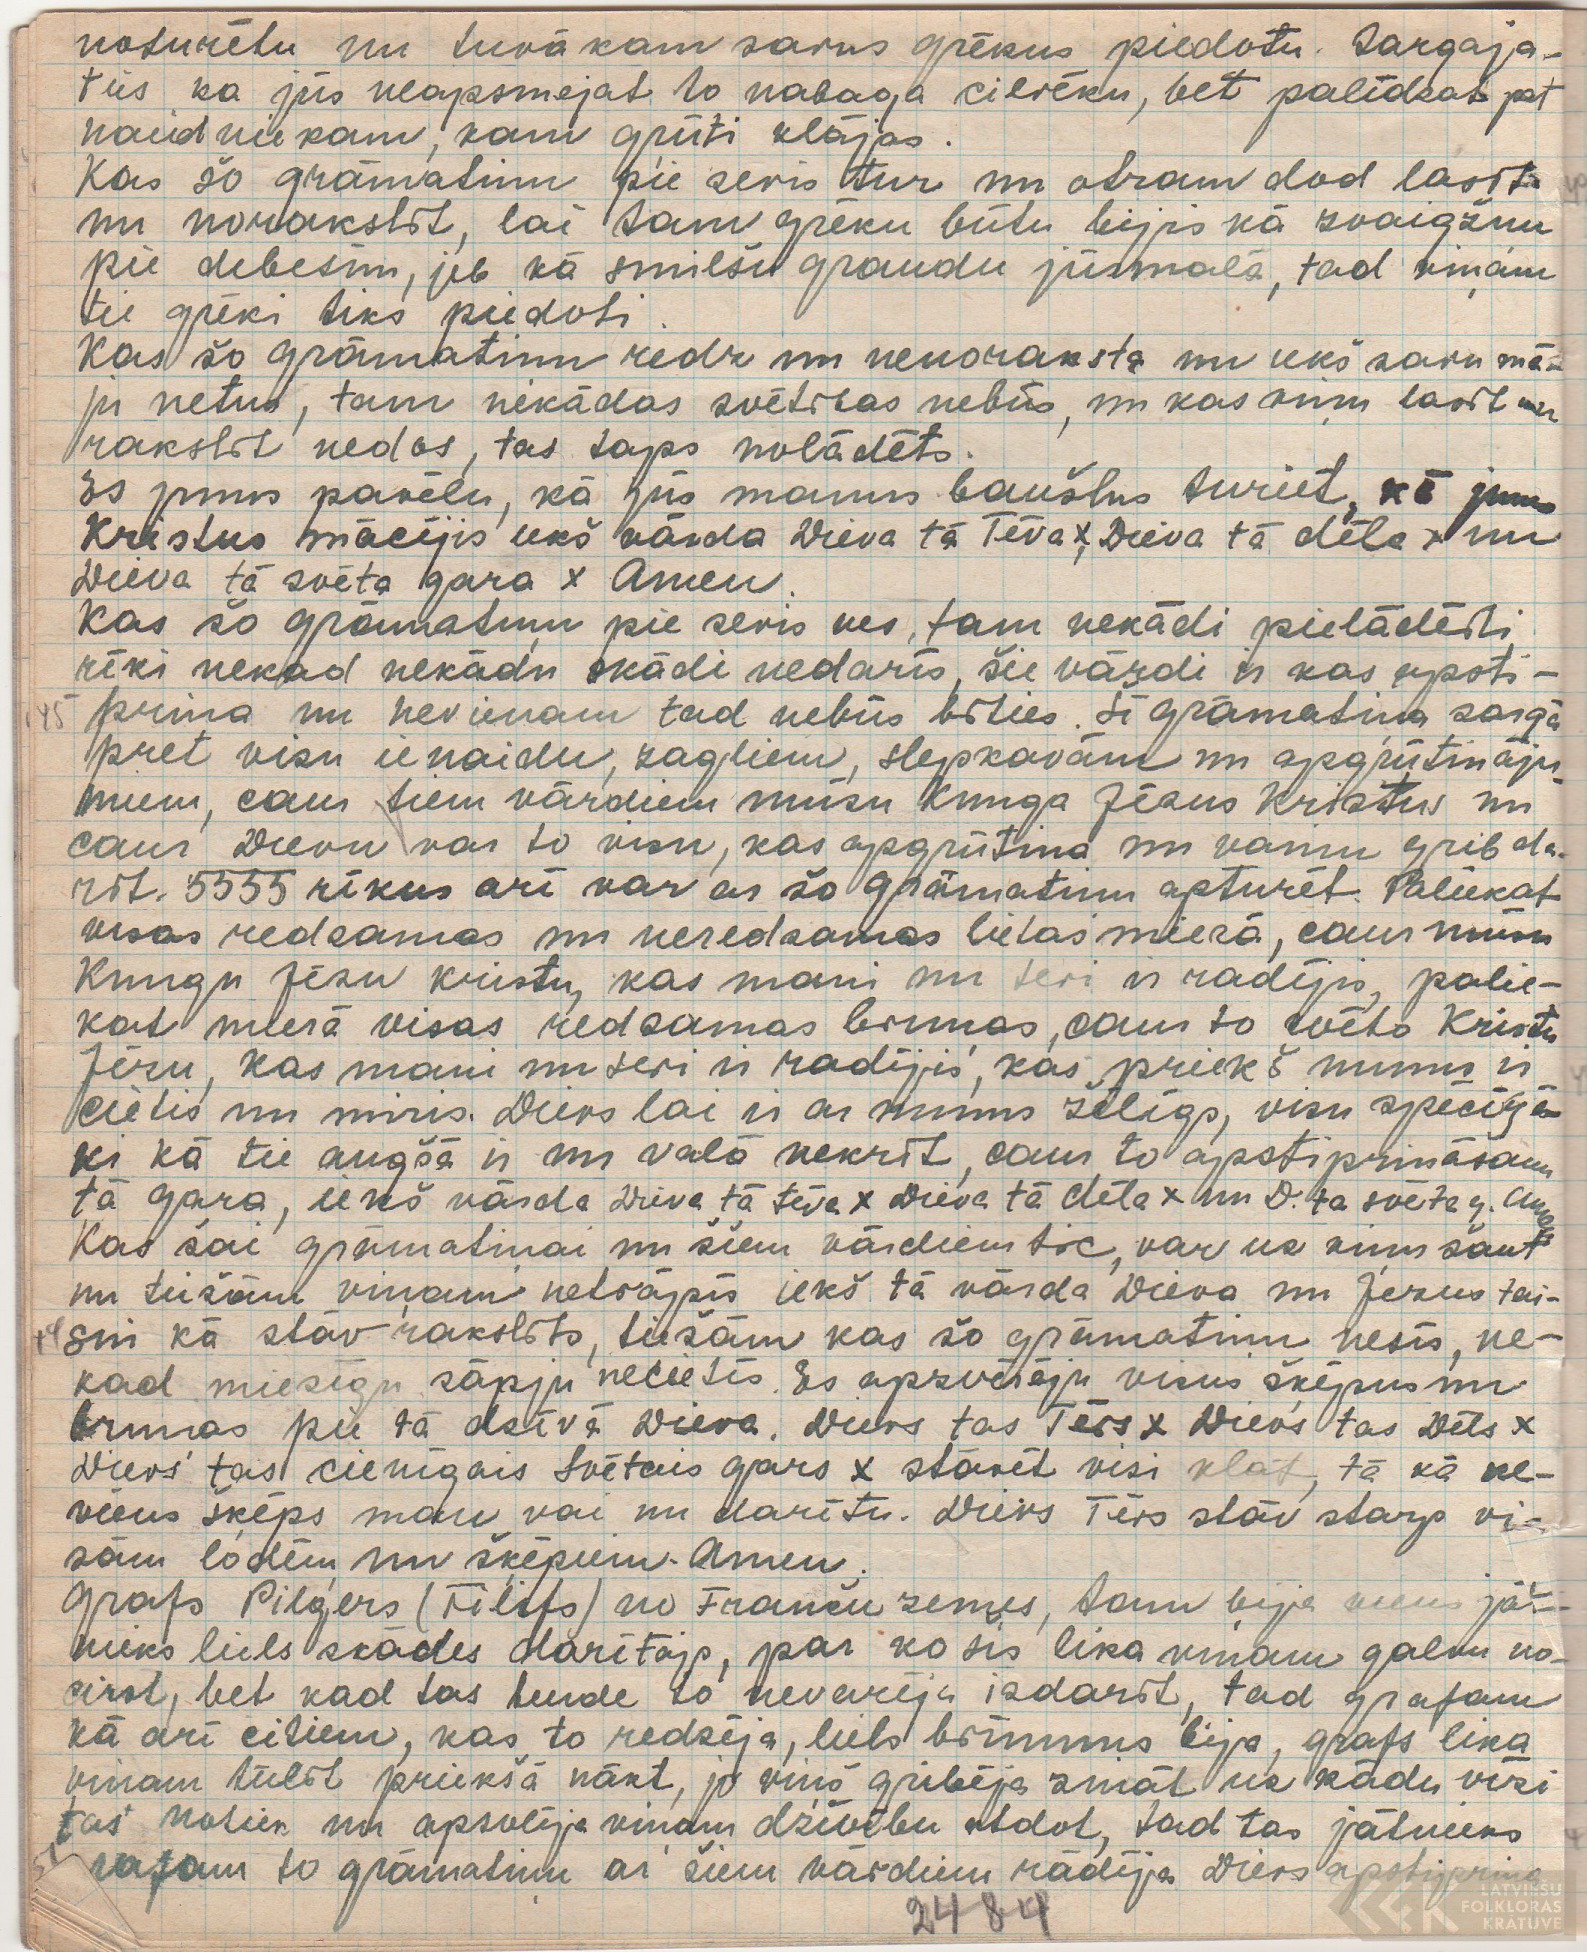 noturētu un tuvākam savus grēkus piedotu. Sargaja-
tiis ka jūs neapsmejat to nabaga cilvēku, bet palīdzat pat
naidniekam, kam grūti klājas.
Kas šo grāmatinu pie sevis tur un otram dod lasīt
un norakstīt, lai tam grēku būtu bijis kā zvaigžnu
pie debesīm, jeb kā smilšu graudu jūrmalā, tad viņam
tie grēki tiks piedoti.
Kas šo grāmatinu redz un nenoraksta un iekš savu mā-
ju netur, tam nekādas svētības nebūs, un kas viņu lasīt un
rakstīt nedos, tas taps nolādēts.
Es jums pavēlu, kā jūs manus baušlus turiet, kā jums
Kristus mācījis iekš vārda Dieva tā Tēva x, Dieva tā dēla x un
Dieva tā svēta gara x Amen.
Kas šo grāmatiņu pie sevis nes, tam nekādi pielādēti
rīki nekad nekādu skādi nedarīs, šie vārdi ir kas apsti-
145 prina un nevienam tad nebūs bīties. Šī grāmatiņa sargā
pret visu ienaidu, zagliem, slepkavām un apgrūtināju-
miem, caur tiem vārdiem mūsu Kunga Jēzus Kristus un
caur Dievu var to visu, kas apgrūtina un vainu grib da-
rīt. 5555 rīkus arī var ar šo grāmatinu apturēt. Paliekat
visas redzamas un neredzamas lietas mierā, caur mūsu
Kungu Jēzu Kristu, kas mani un tevi ir radījis, palie-
kat mierā visas redzamas brunas, caur to svēto Kristu
Jēzu, kas mani un tevi ir radījis, kas priekš mums ir
cietis un miris. Dievs lai ir ar mums žēlīgs, visu spēcīgā-
ki kā tie augšā ir un valā nekrīt, caur to apstiprināšanu
tā gara, iekš vārda Dieva tā tēva x Dieva tā dēla x un D. ta svēta g. Amen
Kas šai grāmatinai un šiem vārdiem tic, var uz viņu šaut
un tiešām viņam netrāpīs iekš tā vārda Dieva un Jezus tai-
sni kā stāv rakstīts, tiešām kas šo grāmatinu nesīs, ne-
kad miesīgu sāpju necietīs. Es apzvērēju visus šķēpus un
brunas pie tā dzīvā Dieva. Dievs tas Tēvs x Dievs tas Dēls x
Dievs tas cienīgais Svētais gars x stāvēt visi klāt, tā kā ne-
viens šķēps man vai nu darītu. Dievs Tēvs stāv starp vi-
sām lodēm un šķēpiem. Amen.
Grafs Pilgers (Filifs) no Franču zemes, tam bija viens jāt-
nieks liels skādes darītājs, par ko šis lika viņam galvu no-
cirst, bet kad tas bende to nevarēja izdarīt, tad grafam
kā arī citiem, kas to redzēja, liels brīnums bija, grafs lika
viņam tūlīt priekšā nākt, jo viņš gribēja zināt uz kādu vīzi
tas notiek un apsolīja viņam dzīvību atdot, tad tas jātnieks
to grāmatinu ar šiem vārdiem rādīja Dievs apstiprina
2484
LATVIEŠU
FOLKLORAS
KRĀTUVE